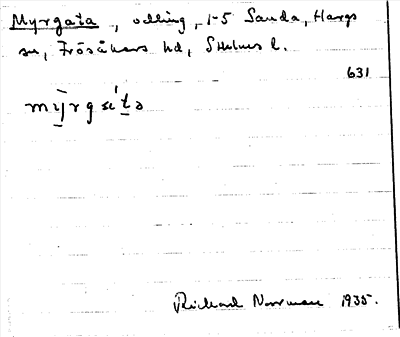 Myrgata, odling, 1-5 Sanda, Hargs
sn, Frösåkers hd, Sthlms l.
631
Richard Norrman 1935.